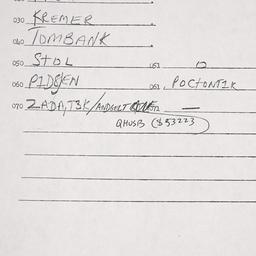 030 KREMER
040 TOMBANK
050 STOL 051 0
060 PIDSEN 061 POCTONTIK
070 ZADA,T3K/ANDSELT —
QHUSB ($53223)